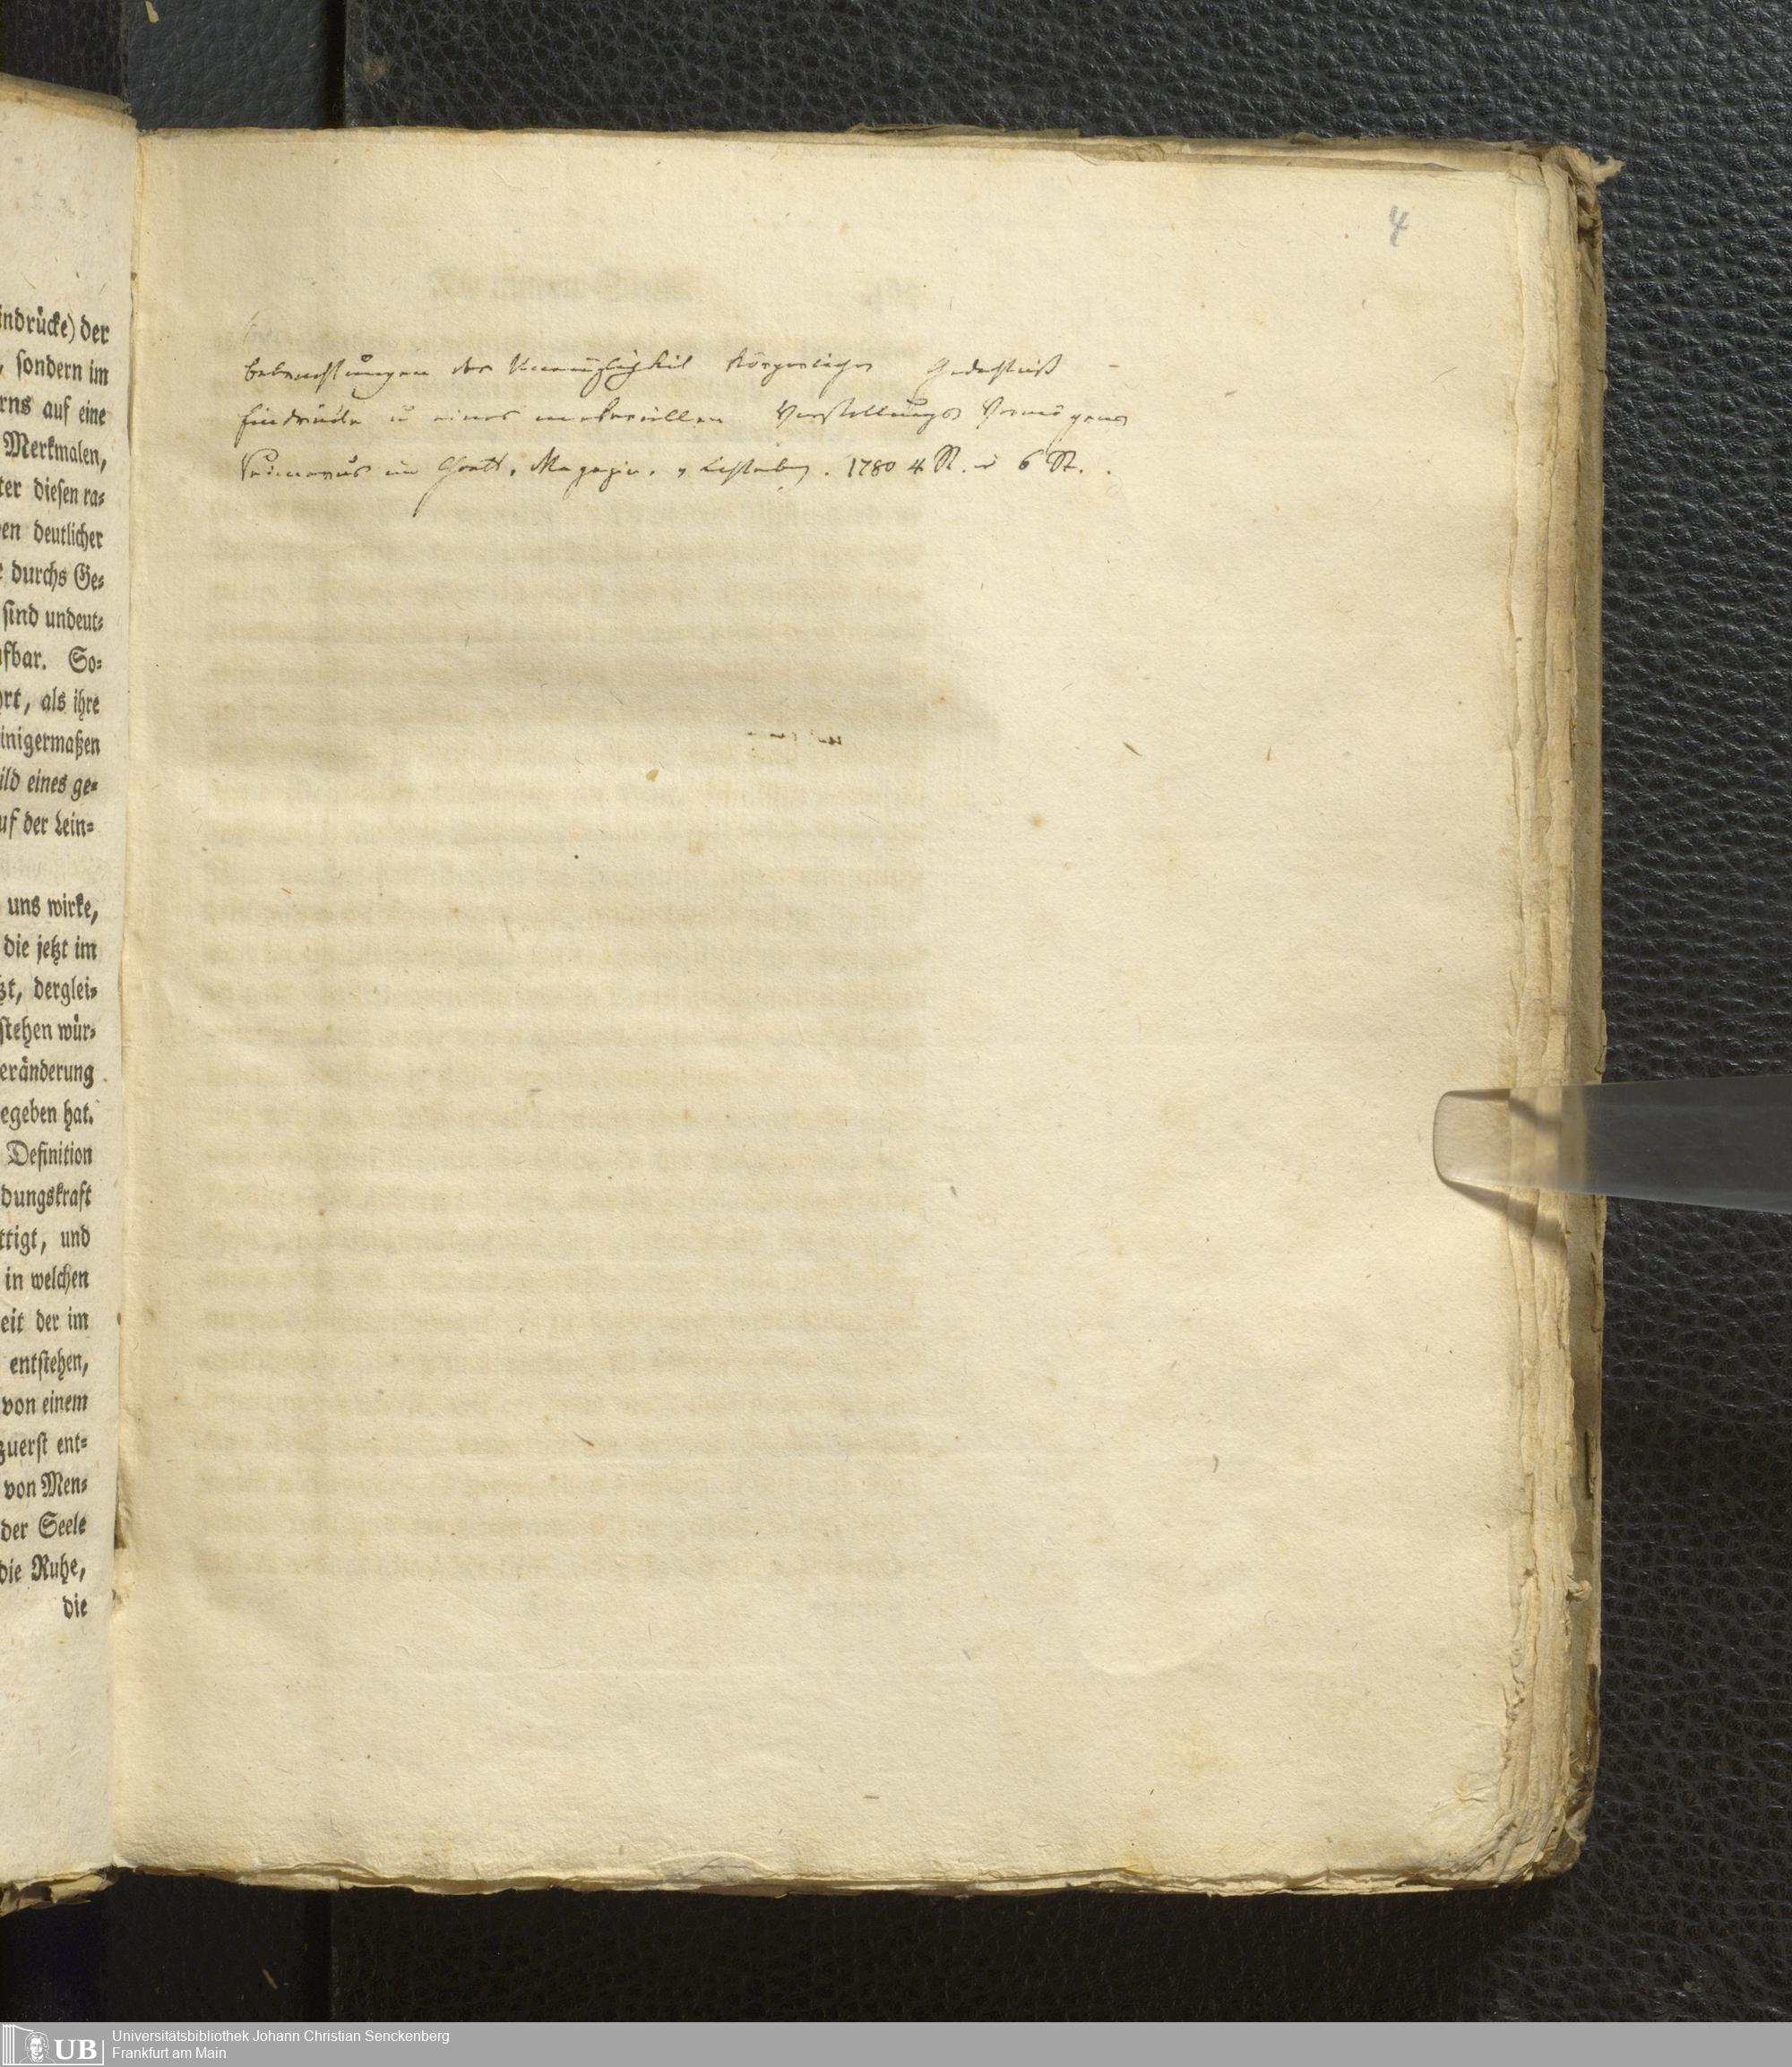 4
Betrachtungen der Unmöglichkeit körperlicher Gedächtniß
Eindrücke u eines materiellen Vorstellungs Vermögens
Reimarus im Goett. Magazin. v Lichtenberg. 1780 4 St. u 6 St.
indrücke) der
, sondern im
rns auf eine
Merkmalen,
ter diesen ra⸗
en deutlicher
durchs Ge⸗
sind undeut⸗
fbar. So⸗
ort, als ihre
inigermaßen
ild eines ge⸗
uf der Lein⸗
uns wirke,
die jetzt im
zt, derglei⸗
stehen wür⸗
eränderung
egeben hat.
Definition
dungskraft
ttigt, und
in welchen
eit der im
entstehen,
von einem
zuerst ent⸗
von Men⸗
der Seele
die Ruhe,
die
UB
Universitätsbibliothek Johann Christian Senckenberg
Frankfurt am Main